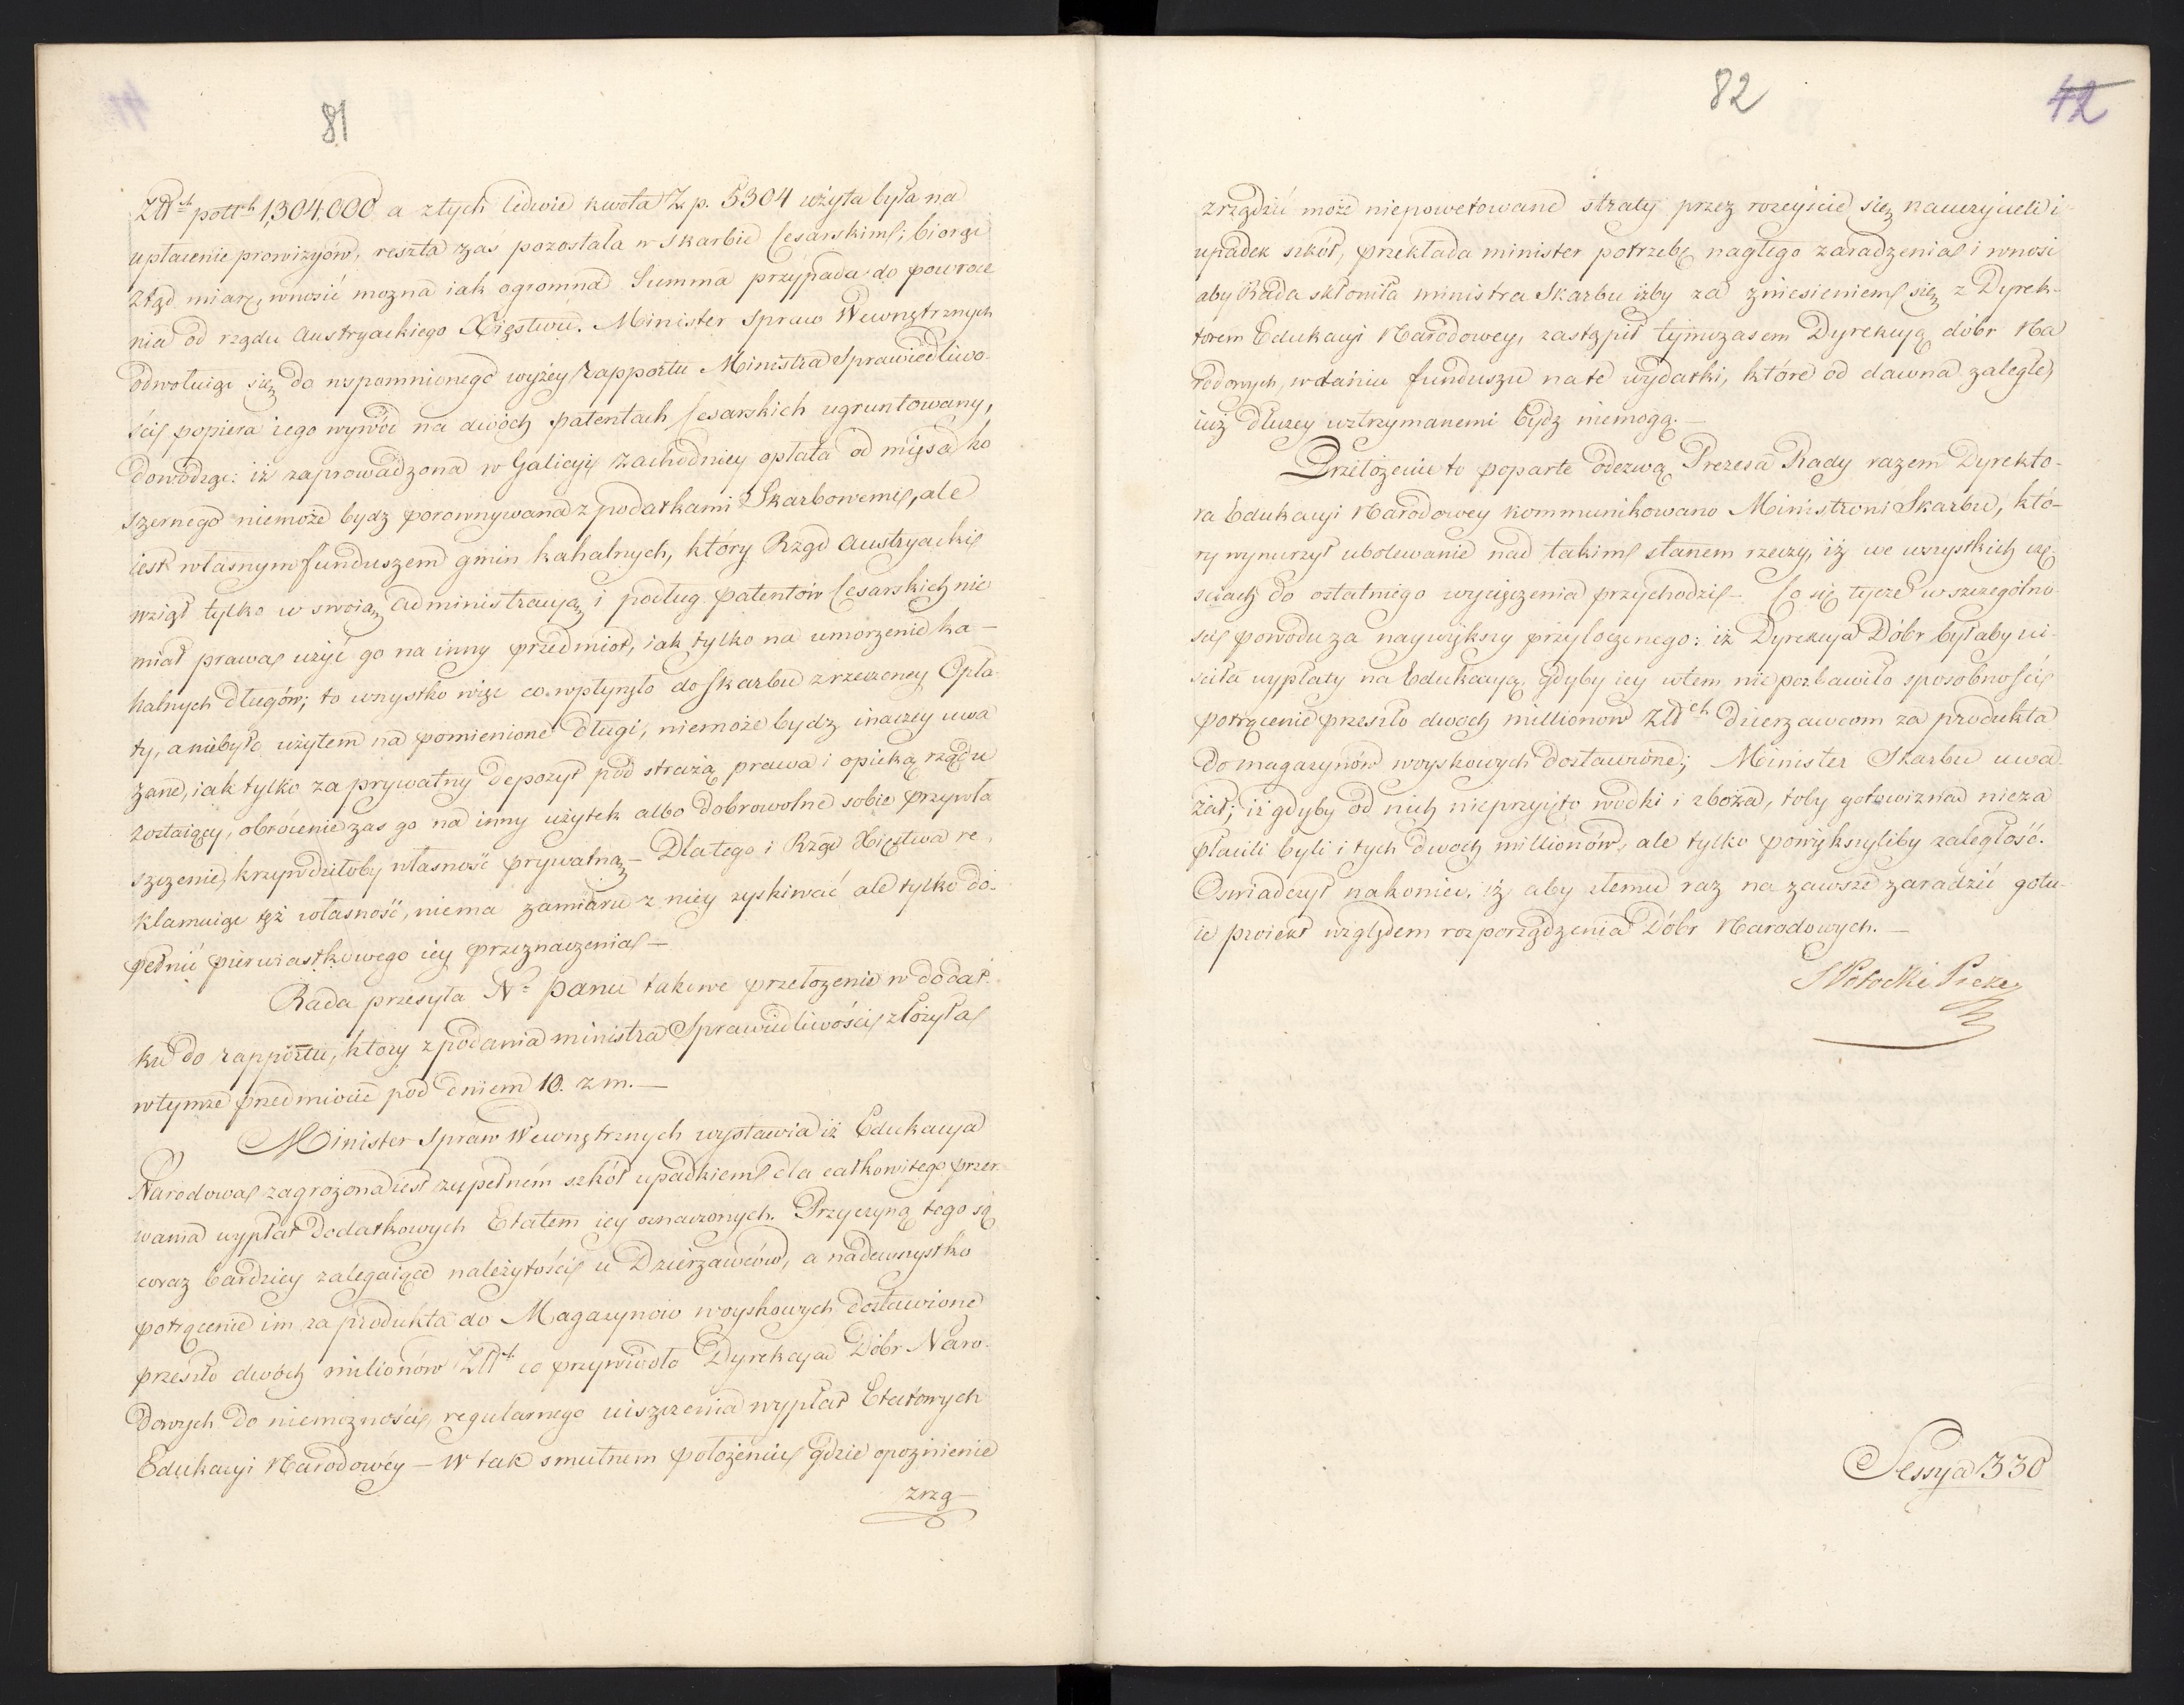 81
Złt.ch poll.ch 1,304,000 a z tych ledwie kwota Z. p. 5304 użyta była na
upłacenie prowizyów, reszta zaś pozostała w Skarbie Cesarskim; biorąc
ztąd miarę, wnosić mozna iak ogromna Summa przypada do powroce
nia od rządu Austryackiego Xięstwu. Minister Spraw Wewnętrznych
odwołuiąc się do wspomnionego wyżey rapportu Ministra Sprawiedliwo-
ści popiera iego wywód na dwóch patentach Cesarskich ugruntowany,
dowodząc: iż zaprowadzona w Galicyi Zachodniey opłata od mięsa ko
szernego niemoże bydz porownywana z podatkami Skarbowemi, ale
iest własnym funduszem gmin kahalnych, który Rząd Austryacki
wziął tylko w swoią Administracyą i podług patentów Cesarskich nie
miał prawa użyć go na inny przedmiot, iak tylko na umorzenie ka-
halnych długów; to wszystko więc co wpłynęło do Skarbu z rzeczoney Opła-
ty, a niebyło użytem na pomienione długi, niemoże bydz inaczey uwa
żane, iak tylko za prywatny depozyt pod strażą prawa i opieką rządu
zostaiący, obrócenie zas go na inny użytek albo dobrowolne sobie przywła
szczenie, krzywdziłoby własność prywatną - Dlatego i Rząd Xięstwa re-
klamuiąc tęż własność, niema zamiaru z niey zyskiwać ale tylko do-
pełnić pierwiastkowego iey przeznaczenia -
Rada przesyła N= Panu takowe przełożenie w dodat-
ku do rapportu, ktory z podania ministra Sprawiedliwości złożyła
w tymże przedmiocie pod dniem 10. z m. -
Minister Spraw Wewnętrznych wystawia iż Edukacya
Narodowa zagrożona iest zupełném szkół upadkiem dla całkowitego przer
wania wypłat dodatkowych Etatem iey oznaczonych. Przyczyną tego są
coraz bardziey zalegaiące należytości u Dzierżawców, a nadewszystko
potrącenie im za produkta do Magazynow woyskowych dostawione
przeszło dwóch milionów Złt.ch co przywiodło Dyrekcya Dóbr Naro-
dowych do niemożności, regularnego uiszczenia wypłat Etatowych
Edukacyi Narodowéy - W tak smutnem położeniu gdzie opoźnienie
zrzą-
82
42
zrządzić może niepowetowane straty przez rozeyście się nauczycieli i
upadek szkół, przekłada minister potrzebę nagłego zaradzenia i wnosi
aby Rada skłoniła ministra Skarbu iżby za zniesieniem się z Dyrek-
torem Edukacyi Narodowey, zastąpił tymczasem Dyrekcyą dóbr Na
rodowych, w daniu funduszu na te wydatki, które od dawna zaległe,
iuż dłużey wztrzymanemi bydz niemogą. -
Przełożenie to poparte odezwą Prezesa Rady razem Dyrekto-
ra Edukacyi Narodowey kommunikowano Ministrowi Skarbu, któ-
ry wynurzył ubolewanie nad takim stanem rzeczy, iż we wszystkich czę-
sciach do ostatniego wycięczenia przychodzi - Co się tycze w szczególno
sci powodu za naywiększy przyłoczonego: iż Dyrekcya Dóbr byłaby ui-
sciła wypłaty na Edukacyą, gdyby iey wtem niepozbawiło sposobności
potrącenie przeszło dwoch millionow Złt.ch dzierzawcom za produkta
do magazynów woyskowych dostawione; Minister Skarbu uwa-
żał; iż gdyby od nich nieprzyięto wodki i zboża, toby gotowizna nieza
płacili byli i tych dwoch millionów, ale tylko powiększyliby zaległość.
Oswiadczył nakoniec, iż aby złemu raz na zawsze zaradzić gotu-
ie proiekt względem rozporządzenia Dóbr Narodowych. -
S Potocki Preze
Sessya 330